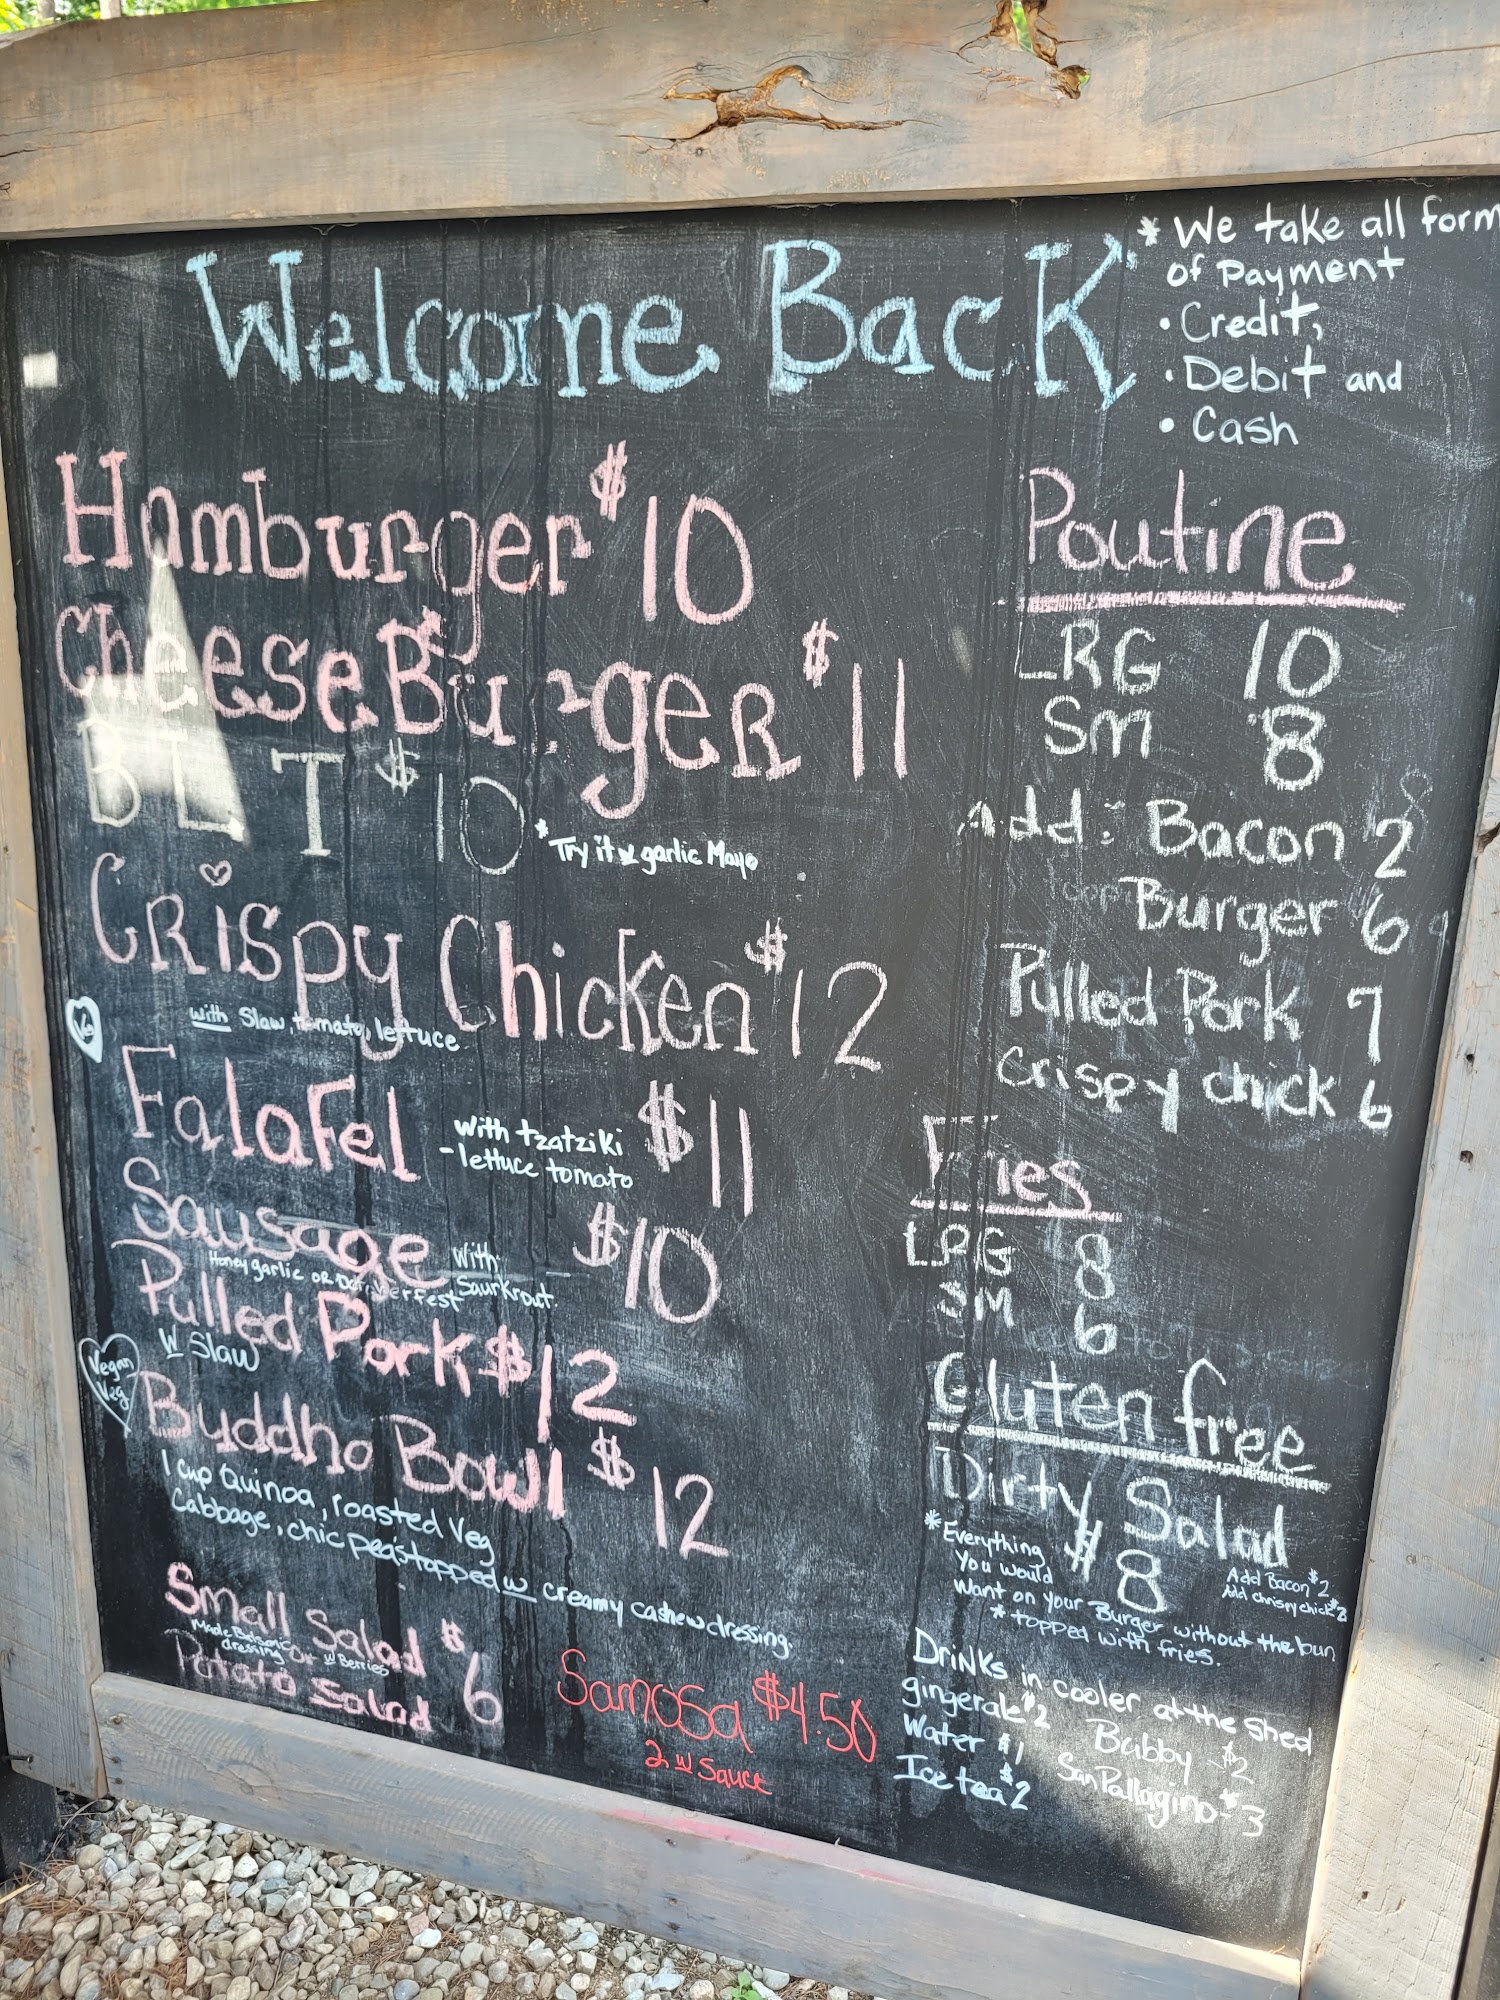 Welcome Back
* We take all form
of Payment
• Credit,
• Debit and
• Cash
Hamburger $10
CheeseBurger $11
BLT $10
* Try it w garlic Mayo
Crispy Chicken $12
with Slaw, tomato, lettuce
Veg
Falafel $11
with tzatziki
- lettuce tomato
Sausage $10
With:
Saurkrout.
Honey garlic or
Pulled Pork $12
W Slaw
Vegan
Veg
Buddha Bowl $12
1 cup Quinoa, roasted Veg
Cabbage, chic pea's topped w creamy cashew dressing.
Small Salad $6
Made Balsamic
dressing or w Berries
Potato Salad
Samosa $4.50
2 w Sauce
Poutine
LRG 10
SM 8
Add: Bacon 2
Burger 6
Pulled Pork 7
Crispy chick 6
Fries
LRG 8
SM 6
Gluten free
Dirty Salad
$8
* Everything
You would
Want on your Burger without the bun
* topped with fries.
Add Bacon $2
Add Chrispy chick $2
Drinks in cooler at the Shed
gingerale $2
Water $1
Ice tea $2
Bubby $2
San Pallagino - $3